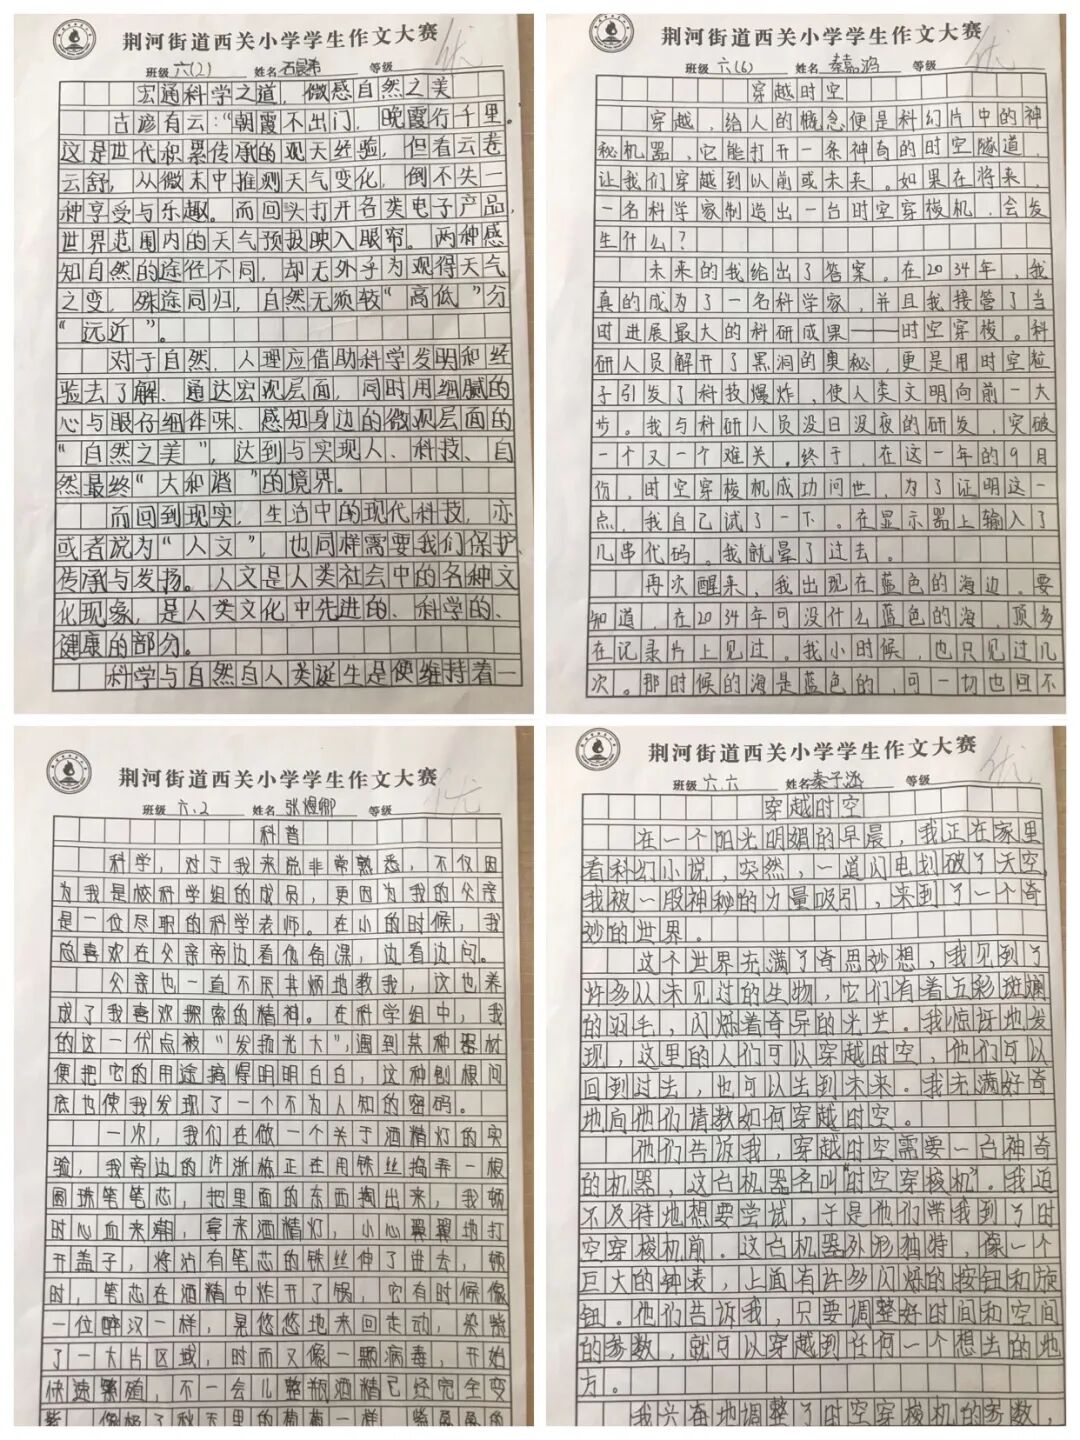 荆河街道西关小学学生作文大赛
优
班级 六(2) 姓名 石晨希 等级
宏通科学之道，微感自然之美
古谚有云：“朝霞不出门，晚霞行千里。
这是世代积累传承的观天经验，但看云卷
云舒，从微末中推测天气变化，倒不失一
种享受与乐趣。而回头打开各类电子产品，
世界范围内的天气预报映入眼帘。两种感
知自然的途径不同，却无外乎为观得天气
之变，殊途同归，自然无须较“高低”分
“远近”。
对于自然，人理应借助科学发明和经
验去了解、通达宏观层面，同时用细腻的
心与眼仔细体味、感知身边的微观层面的
“自然之美”，达到与实现人、科技、自
然最终“大和谐”的境界。
而回到现实，生活中的现代科技，亦
或者说为“人文”，也同样需要我们保护、
传承与发扬。人文是人类社会中的各种文
化现象，是人类文化中先进的、科学的、
健康的部分。
科学与自然自人类诞生是便维持着一
荆河街道西关小学学生作文大赛
优
班级 六(6) 姓名 秦嘉鸿 等级
穿越时空
穿越，给人的概念便是科幻片中的神
秘机器，它能打开一条神奇的时空隧道，
让我们穿越到以前或未来。如果在将来，
一名科学家制造出一台时空穿梭机，会发
生什么？
未来的我给出了答案。在2034年，我
真的成为了一名科学家，并且我接管了当
时进展最大的科研成果——时空穿梭。科
研人员解开了黑洞的奥秘，更是用时空粒
子引发了科技爆炸，使人类文明向前一大
步。我与科研人员没日没夜的研发，突破
一个又一个难关。终于，在这一年的9月
份，时空穿梭机成功问世，为了证明这一
点，我自己试了一下。在显示器上输入了
几串代码。我就晕了过去。
再次醒来，我出现在蓝色的海边。要
知道，在2034年可没什么蓝色的海，顶多
在记录片上见过。我小时候，也只见过几
次。那时候的海是蓝色的，可一切也回不
荆河街道西关小学学生作文大赛
优
班级 六.2 姓名 张煜卿 等级
科普
科学，对于我来说非常熟悉，不仅因
为我是校科学组的成员，更因为我的父亲
是一位尽职的科学老师。在小的时候，我
总喜欢在父亲旁边看他备课，边看边问。
父亲也一直不厌其烦地教我，这也养
成了我喜欢探索的精神。在科学组中，我
的这一优点被“发扬光大”，遇到某种器材
便把它的用途搞得明明白白，这种刨根问
底也使我发现了一个不为人知的密码。
一次，我们在做一个关于酒精灯的实
验，我旁边的许浙栋正在用铁丝捣弄一根
圆珠笔笔芯，把里面的东西掏出来，我顿
时心血来潮，拿来酒精灯，小心翼翼地打
开盖子，将沾有笔芯的铁丝伸了进去，顿
时，笔芯在酒精中炸开了锅，它有时候像
一位醉汉一样，晃悠悠地来回走动，染紫
了一大片区域，时而又像一颗病毒，开始
快速繁殖，不一会儿整瓶酒精已经完全变
紫，像极了秋天里的葡萄一样，紫莹莹的
荆河街道西关小学学生作文大赛
优
班级 六.六 姓名 秦子涵 等级
穿越时空
在一个阳光明媚的早晨，我正在家里
看科幻小说，突然，一道闪电划破了天空，
我被一股神秘的力量吸引，来到了一个奇
妙的世界。
这个世界充满了奇思妙想，我见到了
许多从未见过的生物，它们有着五彩斑斓
的羽毛，闪烁着奇异的光芒。我惊讶地发
现，这里的人们可以穿越时空，他们可以
回到过去，也可以去到未来。我充满好奇
地向他们请教如何穿越时空。
他们告诉我，穿越时空需要一台神奇
的机器，这台机器名叫“时空穿梭机”。我迫
不及待地想要尝试，于是他们带我到了时
空穿梭机前。这台机器外形独特，像一个
巨大的钟表，上面有许多闪烁的按钮和旋
钮。他们告诉我，只要调整好时间和空间
的参数，就可以穿越到任何一个想去的地
方。
我兴奋地调整了时空穿梭机的参数，